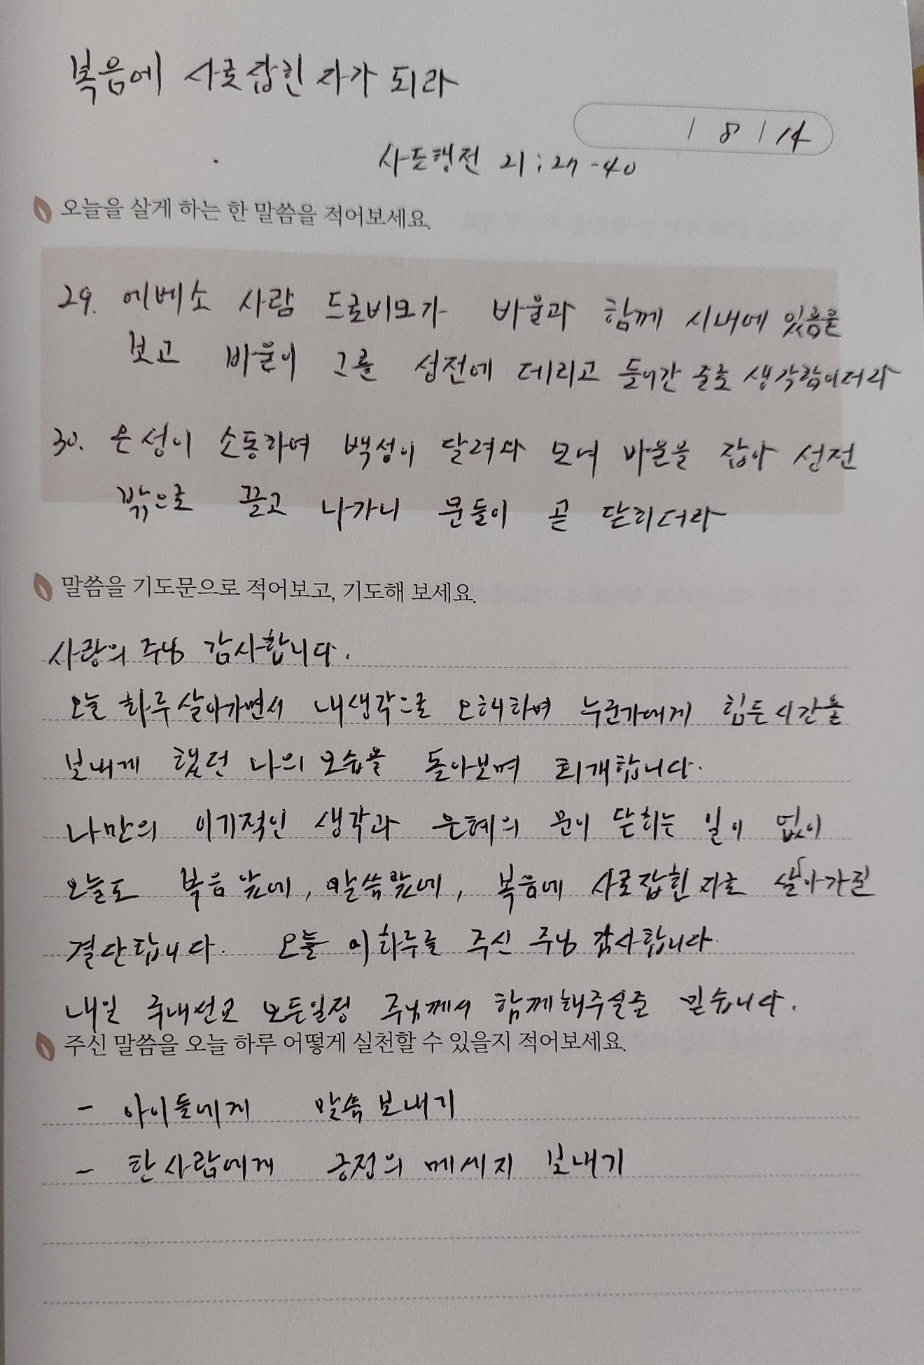 복음에 사로잡힌 자가 되라
/ 8 / 14
사도행전 21:27-40
오늘을 살게 하는 한 말씀을 적어보세요.
29. 에베소 사람 드로비모가 바울과 함께 시내에 있음을
보고 바울이 그를 성전에 데리고 들어간 줄로 생각함이더라
30. 온 성이 소동하여 백성이 달려와 모여 바울을 잡아 성전
밖으로 끌고 나가니 문들이 곧 닫히더라
말씀을 기도문으로 적어보고, 기도해 보세요.
사랑의 주님 감사합니다.
오늘 하루 살아가면서 내생각으로 오해하여 누군가에게 힘든시간을
보내게 했던 나의 모습을 돌아보며 회개합니다.
나만의 이기적인 생각과 은혜의 문이 닫히는 일이 없이
오늘도 복음앞에, 말씀앞에, 복음에 사로잡힌 자로 살아가길
결단합니다. 오늘 이하루를 주신 주님 감사합니다
내일 국내선교 모든일정 주님께서 함께해주실줄 믿습니다.
주신 말씀을 오늘 하루 어떻게 실천할 수 있을지 적어보세요.
- 아이들에게 말씀보내기
- 한사람에게 긍정의 메세지 보내기